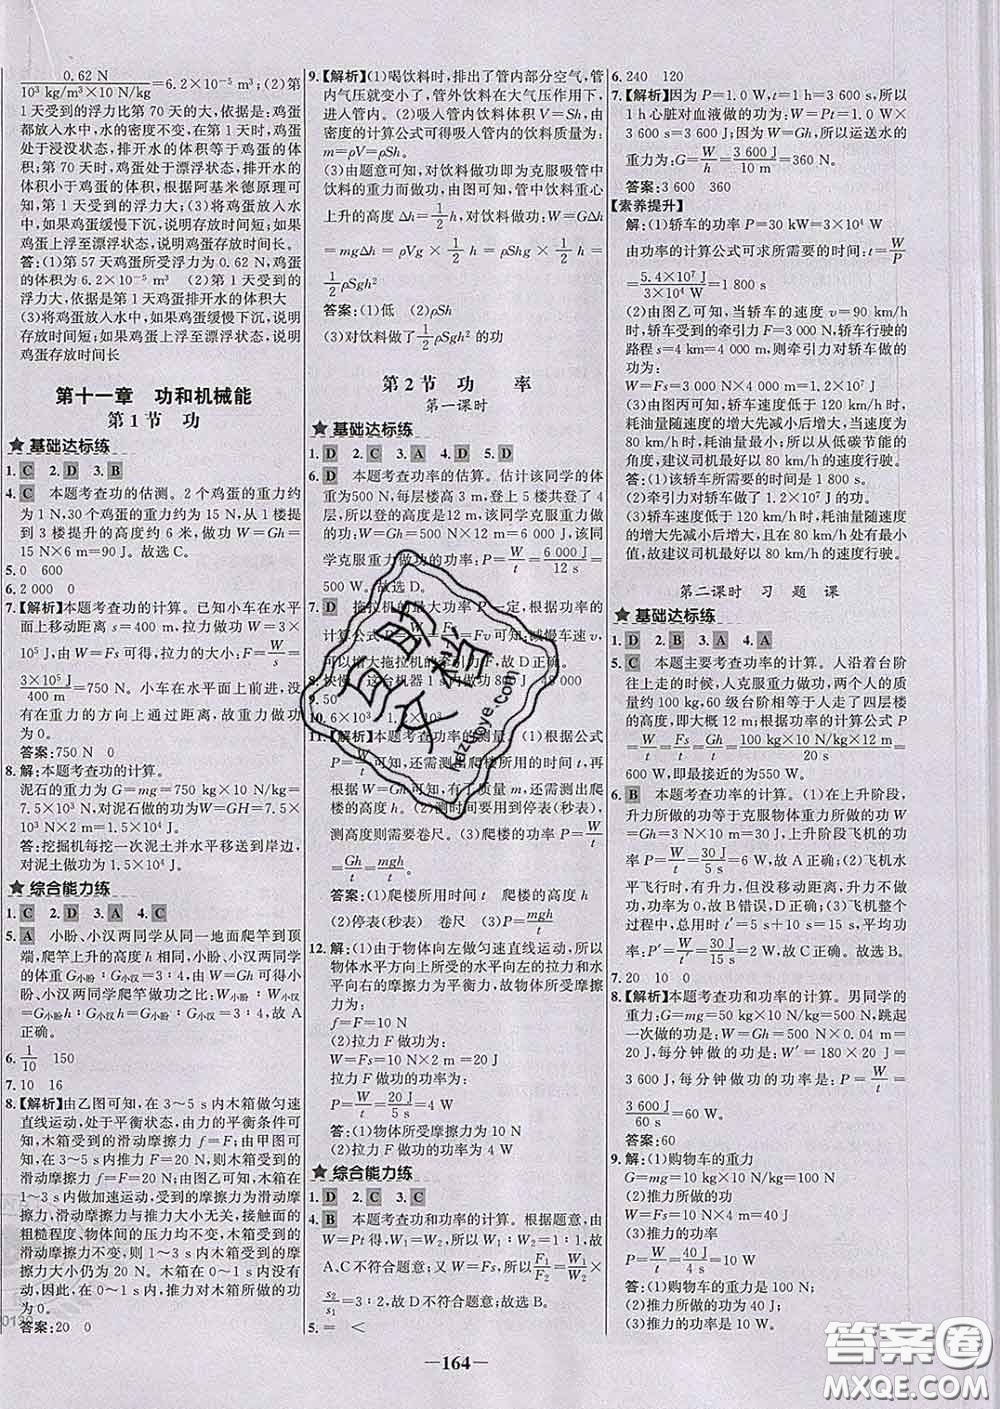 0.62 N/(10³ kg/m³×10 N/kg)=6.2×10⁻⁵ m³;(2)第
1天受到的浮力比第70天的大,依据是:鸡蛋
都放入水中,水的密度不变,在第1天时,鸡蛋
处于浸没状态,排开水的体积等于鸡蛋的体
积;第70天时,鸡蛋处于漂浮状态,排开水的
体积小于鸡蛋的体积,根据阿基米德原理可
知,第1天受到的浮力大;(3)将鸡蛋放入水
中,如果鸡蛋缓慢下沉,说明存放时间短;如果
鸡蛋上浮至漂浮状态,说明存放时间长。
答:(1)第57天鸡蛋所受浮力为0.62 N,鸡蛋
的体积为6.2×10⁻⁵ m³ (2)第1天受到的
浮力大,因为第1天鸡蛋排开水的体积大
(3)将鸡蛋放入水中,如果鸡蛋缓慢下沉,说明存放
时间短;如果鸡蛋上浮至漂浮状态,说明
鸡蛋存放时间长
第十一章 功和机械能
第1节 功
基础达标练
1. C 2. D 3. B
4. C 本题考查功的估测。2个鸡蛋的重力约
为1 N,30个鸡蛋的重力约为15 N,从1楼提
到3楼提升的高度约6米,做功约W=Gh=
15 N×6 m=90 J。故选C。
5. 0 600
6. 2 000 0
7.【解析】本题考查功的计算。已知小车在水平
面上移动距离s=400 m,拉力做功W=3×
10⁵ J,由W=Fs可知,水平拉力F=W/s=
3×10⁵ J/400 m=750 N。小车在水平面上前进,没
有在重力的方向上通过距离,故重力做功
为0。
答案:750 N 0
8. 解:本题考查功的计算。
泥石的重力为G=mg=750 kg×10 N/kg=
7.5×10³ N,对泥石做的功为W=GH=7.5×
10³ N×2 m=1.5×10⁴ J。
答:挖掘机每挖一次泥土并移动至岸边,
对泥土做功为1.5×10⁴ J。
综合能力练
1. C 2. D 3. A 4. C
5. A 小盼、小汉两同学从同一地面爬竿到顶
端,爬竿上升的高度h相同,小盼、小汉两同学
的体重G小盼:G小汉=3:4,由W=Gh可
知,小盼、小汉两同学爬竿做功之比:W小盼:W小汉=
G小盼h:G小汉h=G小盼:G小汉=3:4,故A
正确。
6. 1/10 150
7. 10 16
8.【解析】由乙图可知,在3~5 s内木箱做匀速
直线运动,处于平衡状态,由力的平衡条件可
知,木箱受到的滑动摩擦力f=F;由甲图可
知,在3~5 s内推力F=20 N,则木箱受到的
滑动摩擦力f=F=20 N;由图乙可知,木箱在
1~3 s内做加速运动,受到的摩擦力为滑动摩
擦力,滑动摩擦力与推力大小无关,接触面的
粗糙程度、物体间的压力均不变,木箱受到的
滑动摩擦力不变,则1~3 s内,木箱受到的滑动
摩擦力大小仍为20 N。木箱在0~1 s内处于
静止,因此,在0~1 s内,推力对木箱所做的功
为0。
答案:20 0
9.【解析】(1)喝饮料时,排出了管内部分空气,管
内气压就变小了,管外饮料在大气压作用下,
进入管内。(2)吸入管内饮料体积V=Sh,由
密度的计算公式可得吸入管内的饮料质量为:
m=ρV=ρSh。
(3)由题意可知,对饮料做功即为克服吸管中
饮料的重力而做功,饮料进入管中,管中重心
上升的高度Δh=1/2h,对饮料做功:W=GΔh
=mgΔh=ρVg×1/2h=ρShg×1/2h=
1/2ρSgh²
答案:(1)低 (2)ρSh
(3)对饮料做了1/2ρSgh²的功
第2节 功 率
第一课时
基础达标练
1. D 2. C 3. A 4. D 5. D
6. D 本题考查功率的估算。估计该同学的体
重为500 N,每层楼高3 m,登上5楼共登了4
层,所以登的高度是12 m,该同学克服重力做
的功:W=Gh=500 N×12 m=6 000 J,该同
学克服重力做功的功率:P=W/t=6 000 J/12 s=
500 W。故选D。
7. D 拖拉机的最大功率P一定,根据功率的
计算公式P=W/t=Fs/t=Fv可知,减慢车速v,
可以增大拖拉机的牵引力F,故D正确。
8. 快慢 这台机器1 s内做功800 J 48 000
9. 50
10. 6×10³
11.【解析】本题考查功率的测量。(1)根据公式
P=W/t可知,还需测出爬楼所用的时间t,再
根据W=Gh可知,有了质量还需测出爬
楼的高度h。(2)测时间要用到停表(秒表),
测高度则需要卷尺。(3)爬楼的功率P=W/t
=Gh/t=mgh/t。
答案:(1)爬楼所用时间t 爬楼的高度h
(2)停表(秒表) 卷尺 (3)P=mgh/t
12. 解:(1)由于物体向左做匀速直线运动,所以
物体水平方向上所受的水平向左的拉力和
水平向右的摩擦力为平衡力。故物体所受摩擦
力为
f=F=10 N
(2)拉力F做功为:
W=Fs=10 N×2 m=20 J
拉力F做功的功率为
P=W/t=20 J/5 s=4 W
答:(1)物体所受摩擦力为10 N
(2)拉力F做功的功率为4 W
综合能力练
1. D 2. C 3. C
4. B 本题考查功和功率的计算。根据题意,由
W=Pt得,W₁=W₂,所以W₁:W₂=1:1,故
A、C不符合题意;又W=Fs,所以F₁/F₂=W₁/W₂×
s₂/s₁=3:2,故D不符合题意;故选B。
5. = <
6. 240 120
7.【解析】因为P=1.0 W,t=1 h=3 600 s,所以
1 h心脏对血液做的功为:W=Pt=1.0 W×
3 600 s=3 600 J;因为W=Gh,所以运送水的
重力为:G=W/h=3 600 J/10 m=360 N。
答案:3 600 360
【素养提升】
解:(1)轿车的功率P=30 kW=3×10⁴ W
由功率的计算公式可求所需要的时间:t=W/P
=5.4×10⁷ J/3×10⁴ W=1 800 s
(2)由图乙可知,当轿车的速度v=90 km/h
时,轿车受到的牵引力F=3 000 N,轿车行驶的
路程s=4 km=4 000 m,则牵引力对轿车做功:
W=Fs=3 000 N×4 000 m=1.2×10⁷ J
(3)由图丙可知,轿车速度低于120 km/h时,
耗油量随速度的增大先减小后增大,当速度为
80 km/h时,耗油量最小,所以从低碳节能的
角度,建议司机最好以80 km/h的速度行驶。
答:(1)所需要的时间是1 800 s。
(2)牵引力对轿车做了1.2×10⁷ J的功。
(3)轿车速度低于120 km/h时,耗油量随速度
的增大先减小后增大,且80 km/h时耗油量
最小,故建议司机最好以80 km/h的速度行驶。
第二课时 习 题 课
基础达标练
1. D 2. B 3. A 4. A
5. C 本题主要考查功率的计算。人沿着台阶
往上走的时候,人克服重力做功,两个人的质
量约为100 kg,60级台阶相当于人走了四层楼
的高度,即大概12 m;根据功率的计算公式P
=W/t=Fs/t=Gh/t=100 kg×10 N/kg×12 m/20 s=
600 W,故最接近的为550 W。
6. B 本题考查功率的计算。(1)在上升阶段,
升力做的功等于克服物体重力所做的功W
=Gh=3 N×10 m=30 J,上升阶段飞机的功
率P=W/t=30 J/5 s=6 W,故A正确;(2)飞机水
平飞行时,有升力,但没有移动距离,升力不做
功,故B错误,D正确;(3)飞机在整个
过程中,总功时t′=5 s+10 s=15 s,升力的功
率:P′=W/t′=30 J/15 s=2 W,故C正确。故选B。
7. 20 10 0
8.【解析】本题考查功和功率的计算。男同学的
重力为:G=mg=50 kg×10 N/kg=500 N,跳起
一次做的功是:W=Gh=500 N×0.04 m=
20 J,每分钟做的功是:W′=180×20 J=
3 600 J,每分钟跳绳做功的功率:P=W/t=
3 600 J/60 s=60 W。
答案:60
9. 解:(1)购物车的重力
G=mg=10 kg×10 N/kg=100 N
(2)推力所做的功
W=Fs=10 N×4 m=40 J
(3)推力所做功的功率
P=W/t=40 J/4 s=10 W
答:(1)购物车的重力是100 N;
(2)推力所做的功为40 J;
(3)推力做功的功率为10 W。
—164—
互助文档
hdzuoye.com
答案圈
MXQE.COM